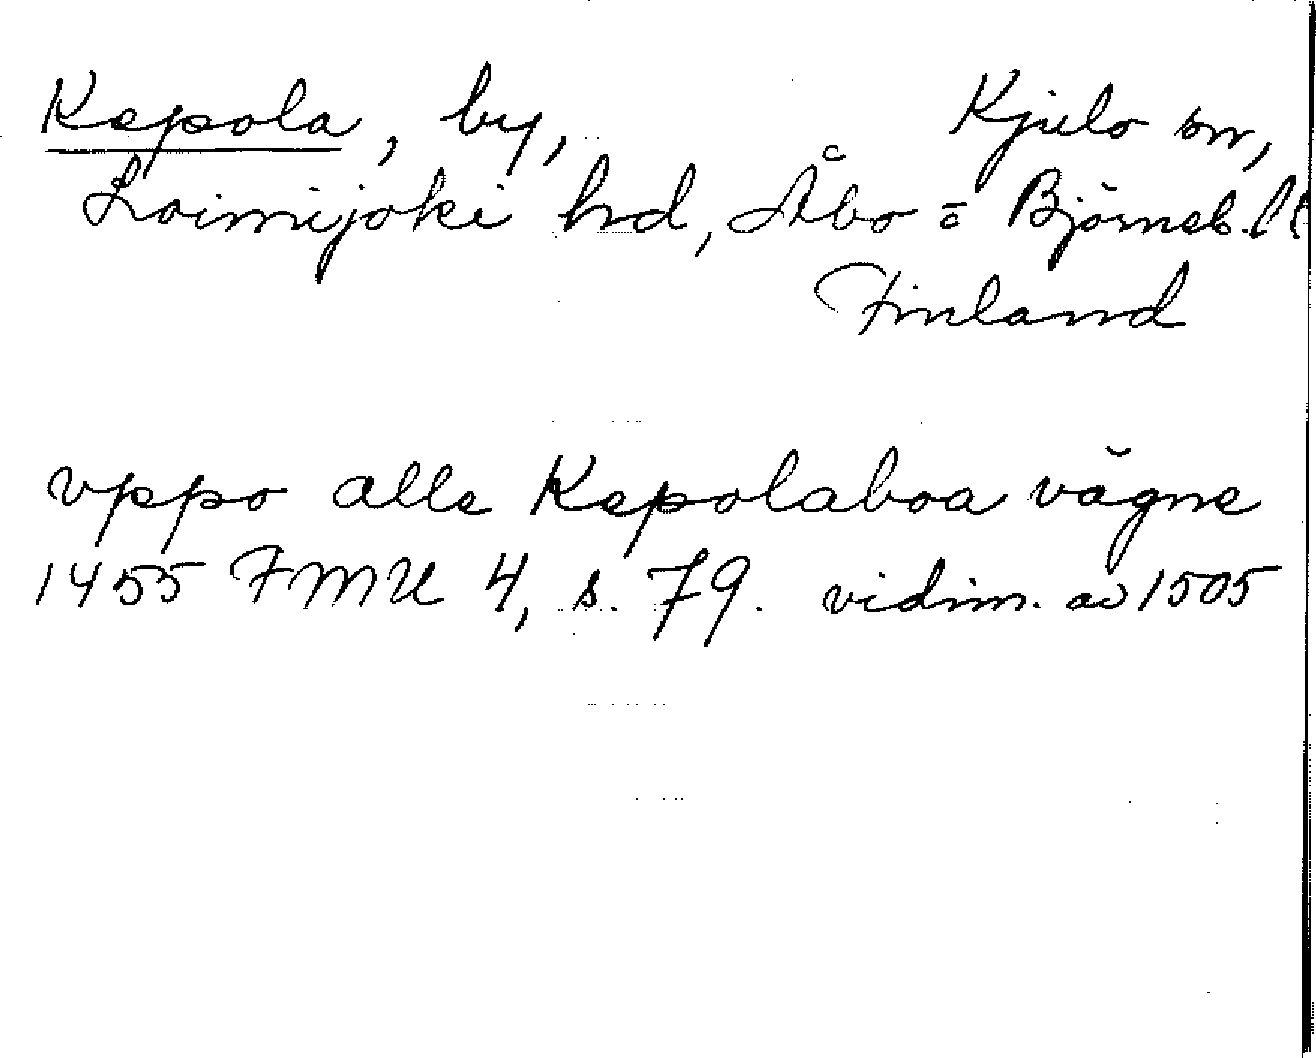 Kepola, by, Kjulo sn,
Loimijoki hd, Åbo o Björneb. l
Finland
vppo alle Kepolaboa vägne
1455 FMU 4, s. 79. vidim. av 1505